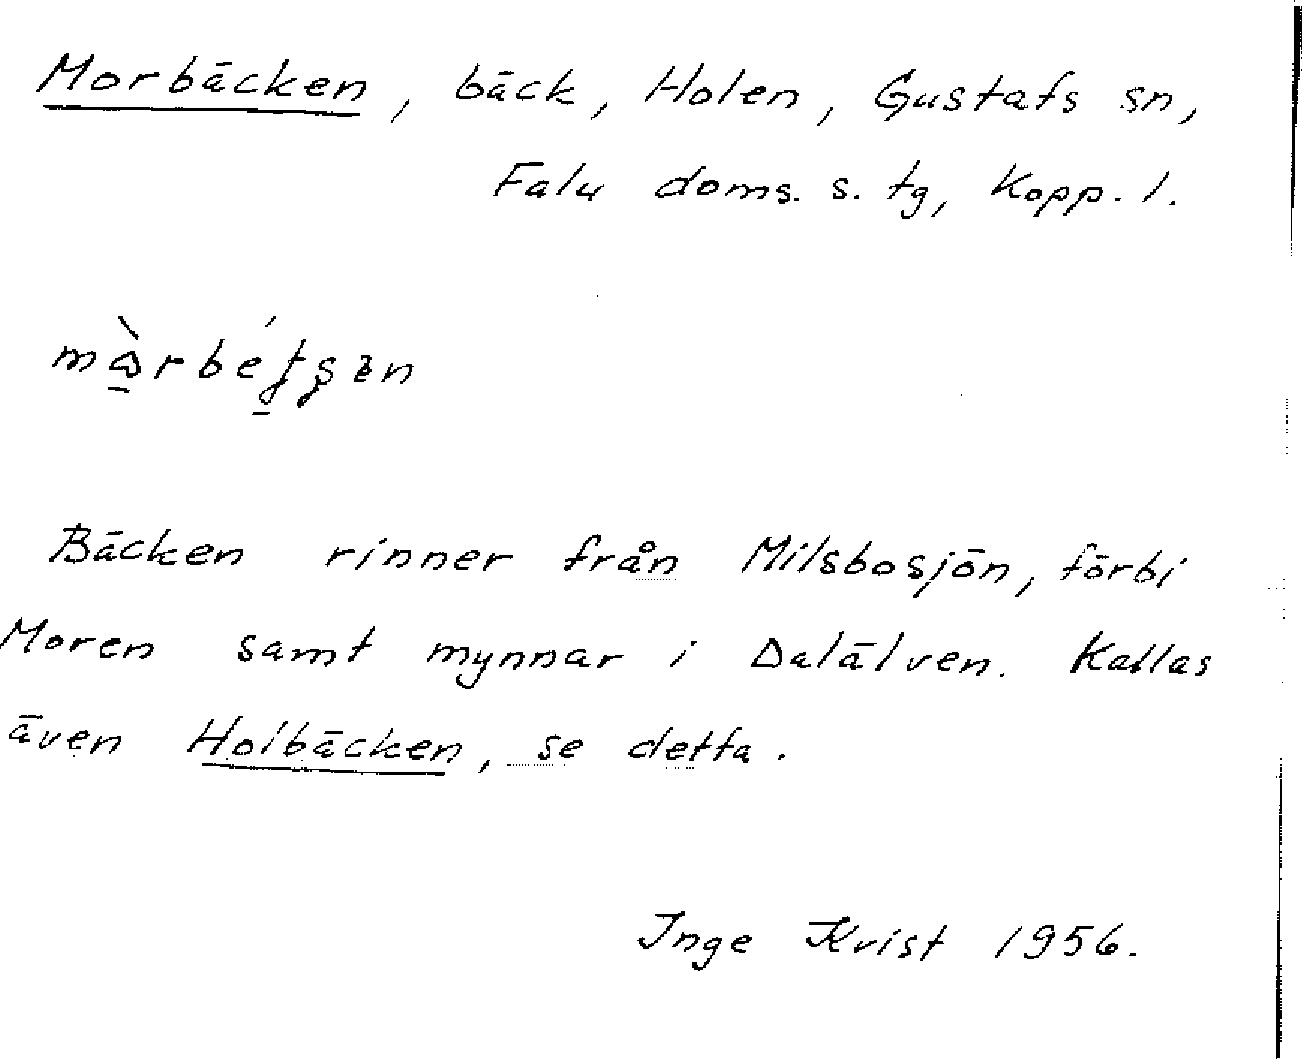 Morbäcken, bäck, Holen, Gustafs sn,
Falu doms. s. tg, Kopp. l.
Bäcken rinner från Milsbosjön, förbi
Moren samt mynnar i Dalälven. Kallas
även Holbäcken, se detta.
Inge Kvist 1956.